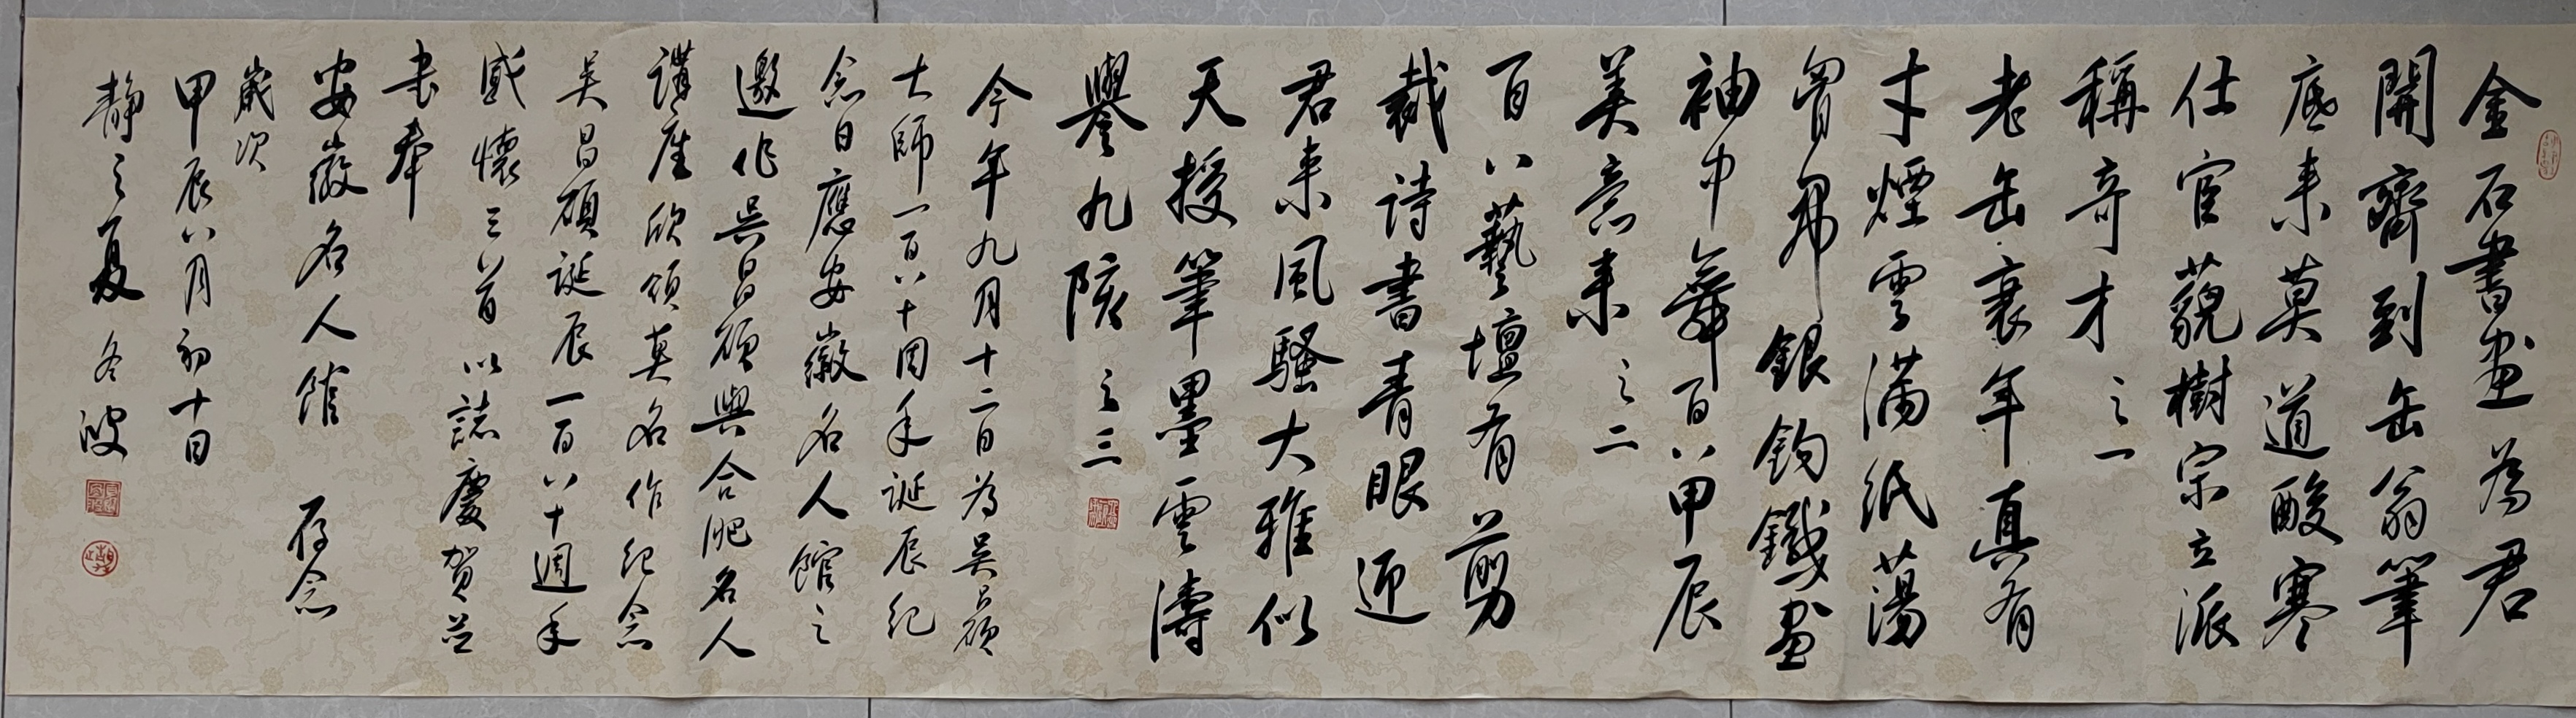 金石書画為君
開齊到缶翁筆
底来莫道酸寒
仕宦藐樹宗立派
稱奇才 之一
老缶衰年真有
才煙雲滿紙蕩
胷帚銀鈎鐵画
袖中舞百八甲辰
美意来 之二
百八藝壇有剪
裁詩書青眼迎
君来風騷大雅似
天授筆墨雲濤
舉九陔 之三
今年九月十二日為吴昌碩
大師一百八十周年誕辰紀
念日應安徽名人館之
邀作吴昌碩與合肥名人
講座欣領莫名作紀念
吴昌碩誕辰一百八十週年
感懷三首以誌慶賀並
書奉
安徽名人館 存念
歲次
甲辰八月初十日
靜之夏冬波